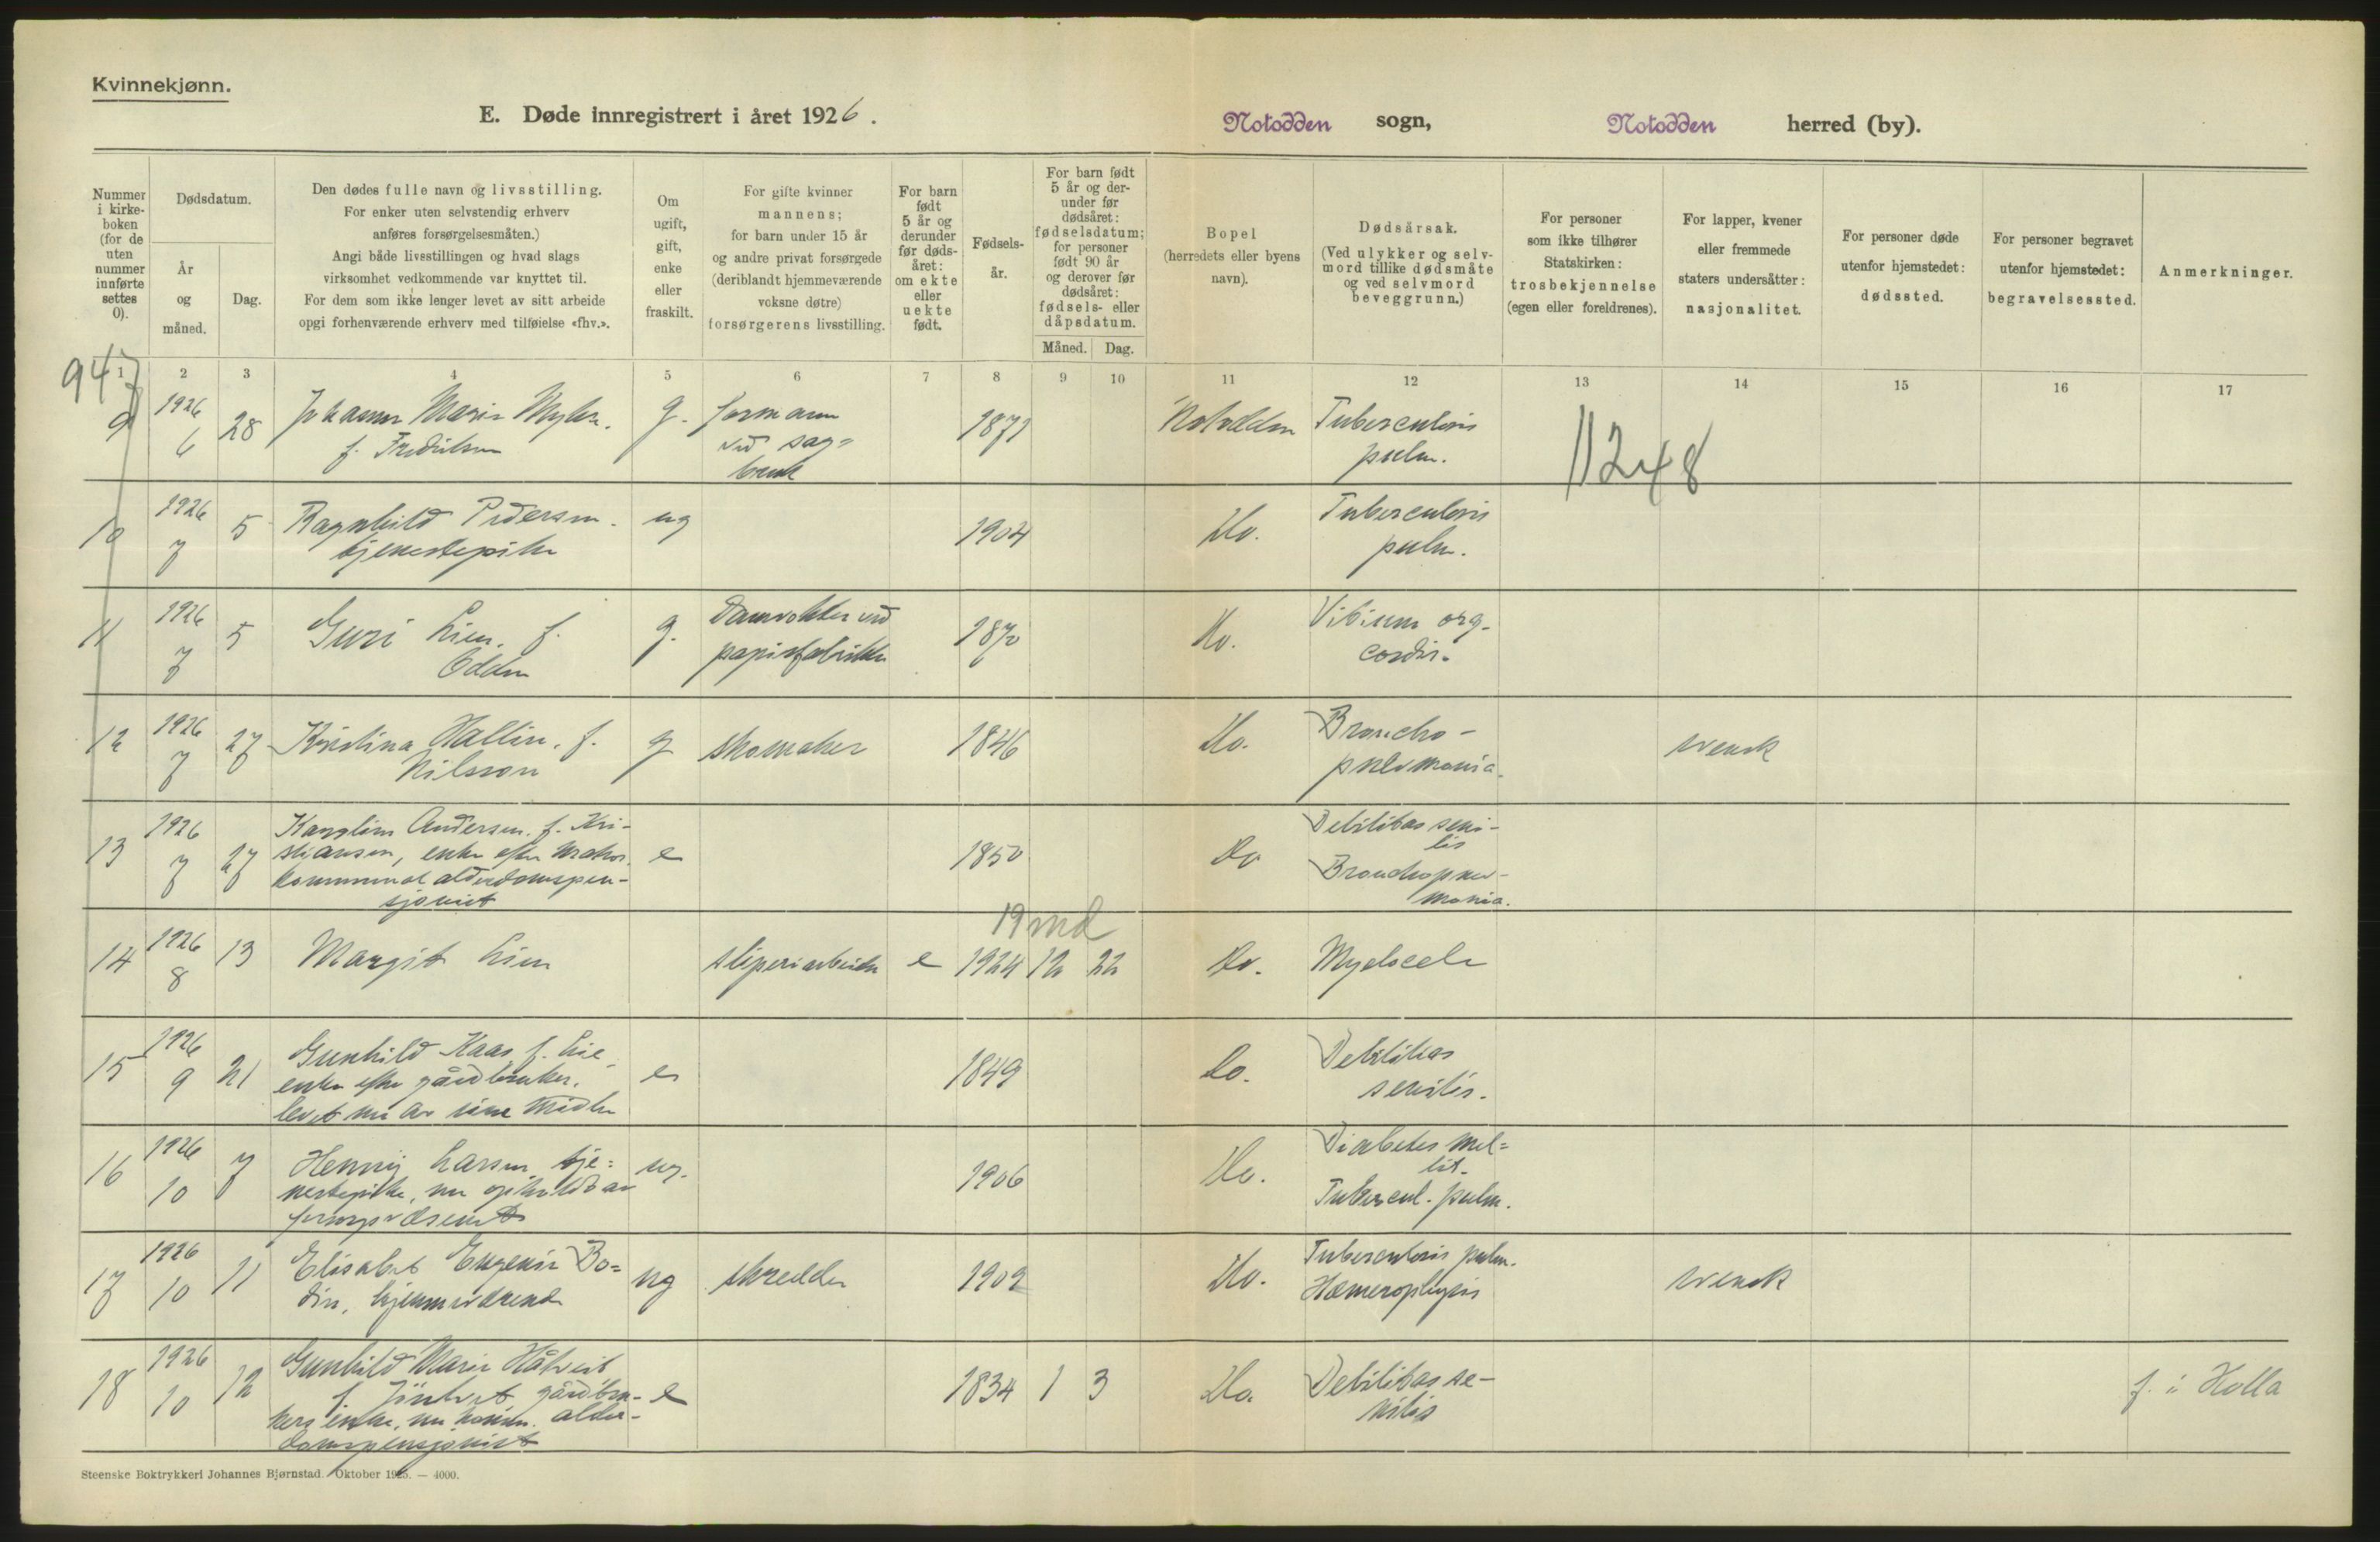 Kvinnekjønn.
E. Døde innregistrert i året 1926.
Notodden sogn,
Notodden herred (by).
Nummer i kirke-boken (for de uten nummer innførte settes 0).
Dødsdatum.
År og måned.
Dag.
Den dødes fulle navn og livsstilling.
For enker uten selvstendig erhverv
anføres forsørgelsesmåten.)
Angi både livsstillingen og hvad slags
virksomhet vedkommende var knyttet til.
For dem som ikke lenger levet av sitt arbeide
opgi forhenværende erhverv med tilføielse «fhv.».
Om ugift, gift, enke eller fraskilt.
For gifte kvinner
mannens;
for barn under 15 år
og andre privat forsørgede
(deriblandt hjemmeværende
voksne døtre)
forsørgerens livsstilling.
For barn født 5 år og derunder før døds-året: om ekte eller uekte født.
Fødsels-år.
For barn født 5 år og der-under før dødsåret: fødselsdatum; for personer født 90 år og derover før dødsåret: fødsels- eller dåpsdatum.
Måned. Dag.
Bopel
(herredets eller byens
navn).
Dødsårsak.
(Ved ulykker og selv-
mord tillike dødsmåte
og ved selvmord
beveggrunn.)
For personer
som ikke tilhører
Statskirken:
trosbekjennelse
(egen eller foreldrenes).
For lapper, kvener
eller fremmede
staters undersåtter:
nasjonalitet.
For personer døde
utenfor hjemstedet:
dødssted.
For personer begravet
utenfor hjemstedet:
begravelsessted.
Anmerkninger.
947
1 2 3 4 5 6 7 8 9 10 11 12 13 14 15 16 17
9 1926 6 28 g. formann 1871 Notodden Tuberculosis
f. ved sag= pulm.
11248
10 1926 7 5 Ragnhild Pedersen. ug 1904 Do. Tuberculosis
tjenestepike pulm.
11 1926 7 5 Guri Lien. f. g. Damvokter ved 1870 Do. Vitium org.
Odden papirfabrikken cordis.
12 1926 7 27 Kristina Hallin. f. g skomaker 1846 Do. Broncho- svensk
Nilsson pneumonia.
13 1926 7 27 Andersen. f. Kri- e 1850 Do Debilitas seni-
stiansen, enke efter lis
kommunal alderdomspen- Bronchopneu-
sjonist monia.
19 md
14 1926 8 13 Margit Lien sliperiarbeider e 1924 12 22 Do. Myelocele
15 1926 9 21 Gunhild Kaas f. Lie e 1849 Do. Debilitas
enke efter gårdbruker. senilis.
levet nu av sine midler
16 1926 10 7 Henny Larsen tje= ug. 1906 Do. Diabetes mel=
nestepike, nu opholdt av lit.
forsorgsvæsenet Tubercul. pulm.
17 1926 10 11 Elisabet Eugenie Bo= ug skredder 1902 Do. Tuberculosis pulm. svensk
din, hjemmeværende
18 1926 10 12 Gunhild Marie e 1834 1 3 Do. Debilitas se- f. i Holla
f. gårdbru- nilis
kers enke, nu komm. alder-
domspensjonist
Steenske Boktrykkeri Johannes Bjørnstad. Oktober 1925. — 4000.